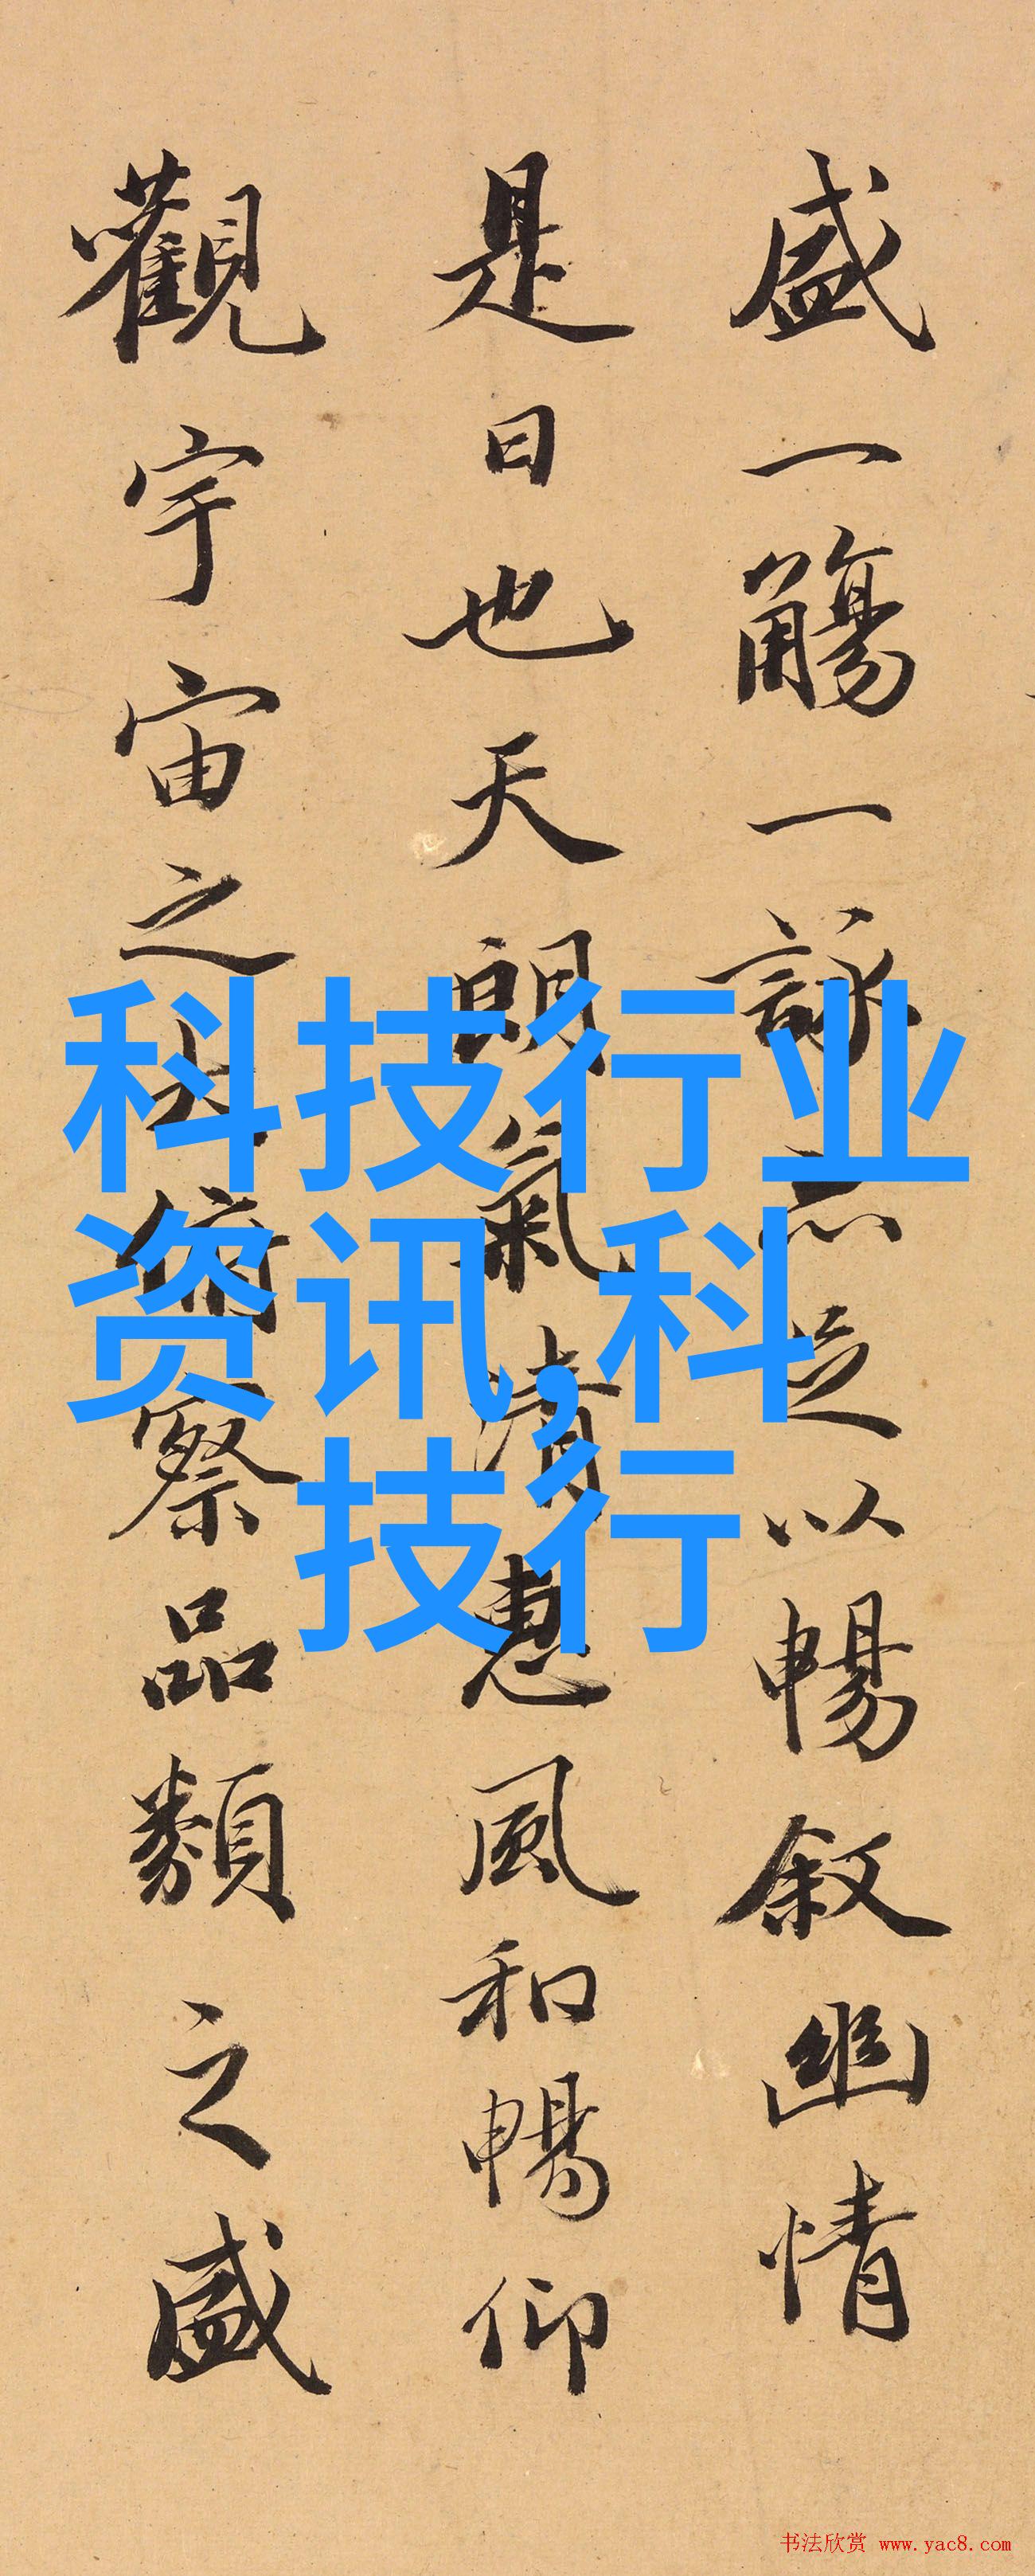 盛一觴一詠亦足以暢叙幽情
是日也天朗氣清惠風和暢仰
觀宇宙之大俯察品類之盛
科技行业
资讯,科
技行
书法欣赏 www.yac8.com